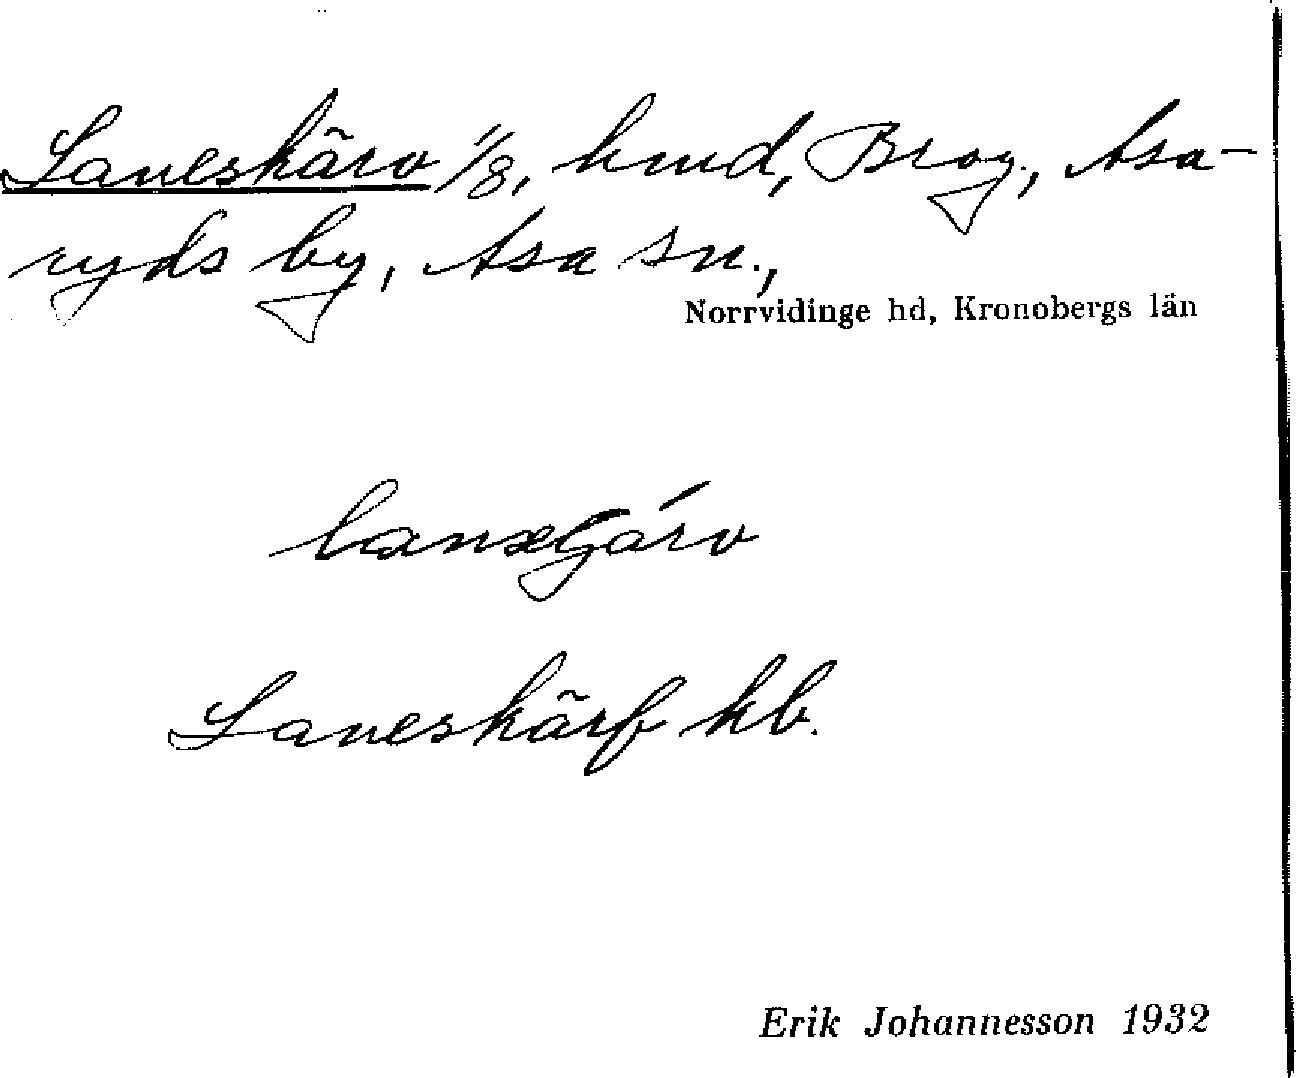 Laneskärv 1/8, hmd, Brog., Asa-
ryds by, Asa sn.,
Norrvidinge hd, Kronobergs län
Laneskärf kb.
Erik Johannesson 1932